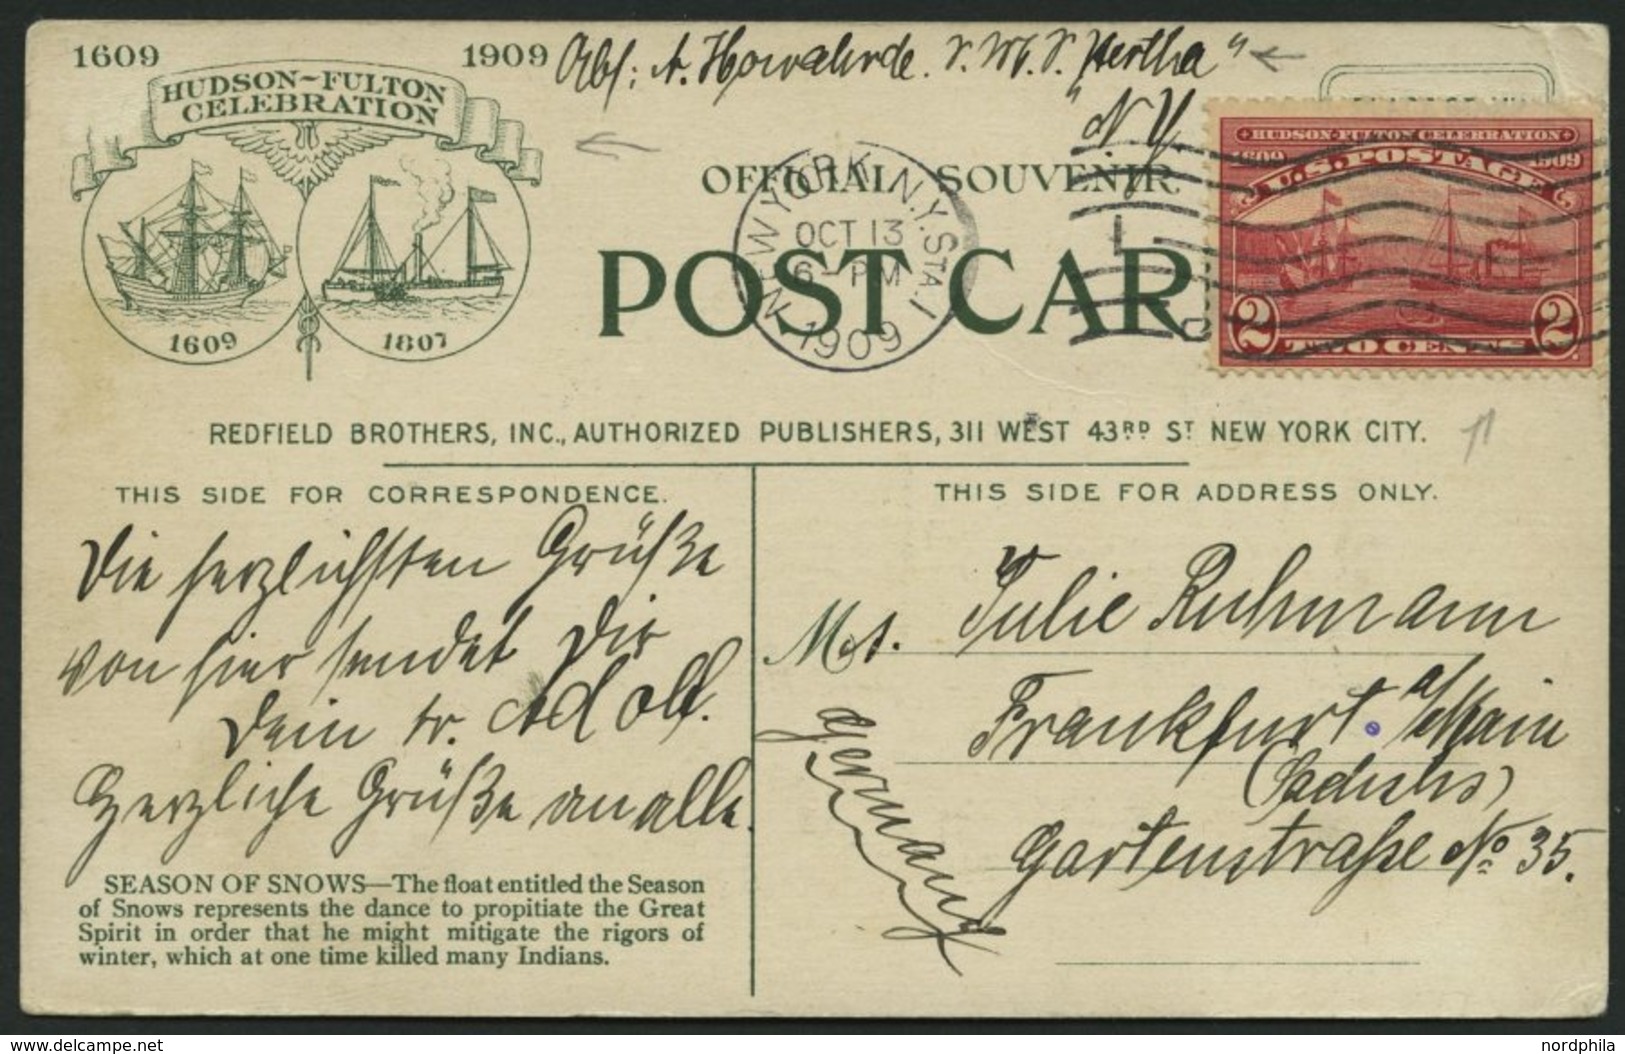 1609 1909
HUDSON-FULTON
CELEBRATION
1609
1807
Abs: A. Howahrde. S. M. S. "Hertha"
N.Y.
OFFICIAL SOUVENIR
POST CAR
NEW YORK, N.Y. STA. I
OCT 13
6 - PM
1909
HUDSON-FULTON CELEBRATION
1609 1909
U.S. POSTAGE
2 TWO CENTS 2
REDFIELD BROTHERS, INC., AUTHORIZED PUBLISHERS, 311 WEST 43RD ST NEW YORK CITY.
THIS SIDE FOR CORRESPONDENCE.
Die herzlichsten Grüße
von hier sendet Dir
Dein tr. Adolf.
Herzliche Grüße an alle.
SEASON OF SNOWS—The float entitled the Season
of Snows represents the dance to propitiate the Great
Spirit in order that he might mitigate the rigors of
winter, which at one time killed many Indians.
THIS SIDE FOR ADDRESS ONLY.
Julie Ruhmann
Frankfurt. a/Main
Gartenstraße No 35.
Germany
www.delcampe.net
nordphila